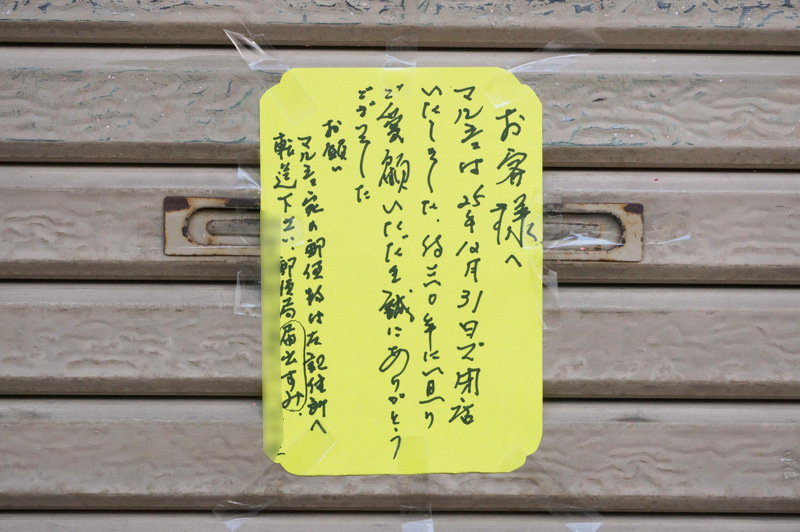 お客様へ
マルヨは25年12月31日で閉店
いたしました。約三〇年に亘り
ご愛顧いただき誠にありがとう
ございました
お願い
マルヨ宛の郵便物は左記住所へ
転送下さい、郵便局届出すみ。